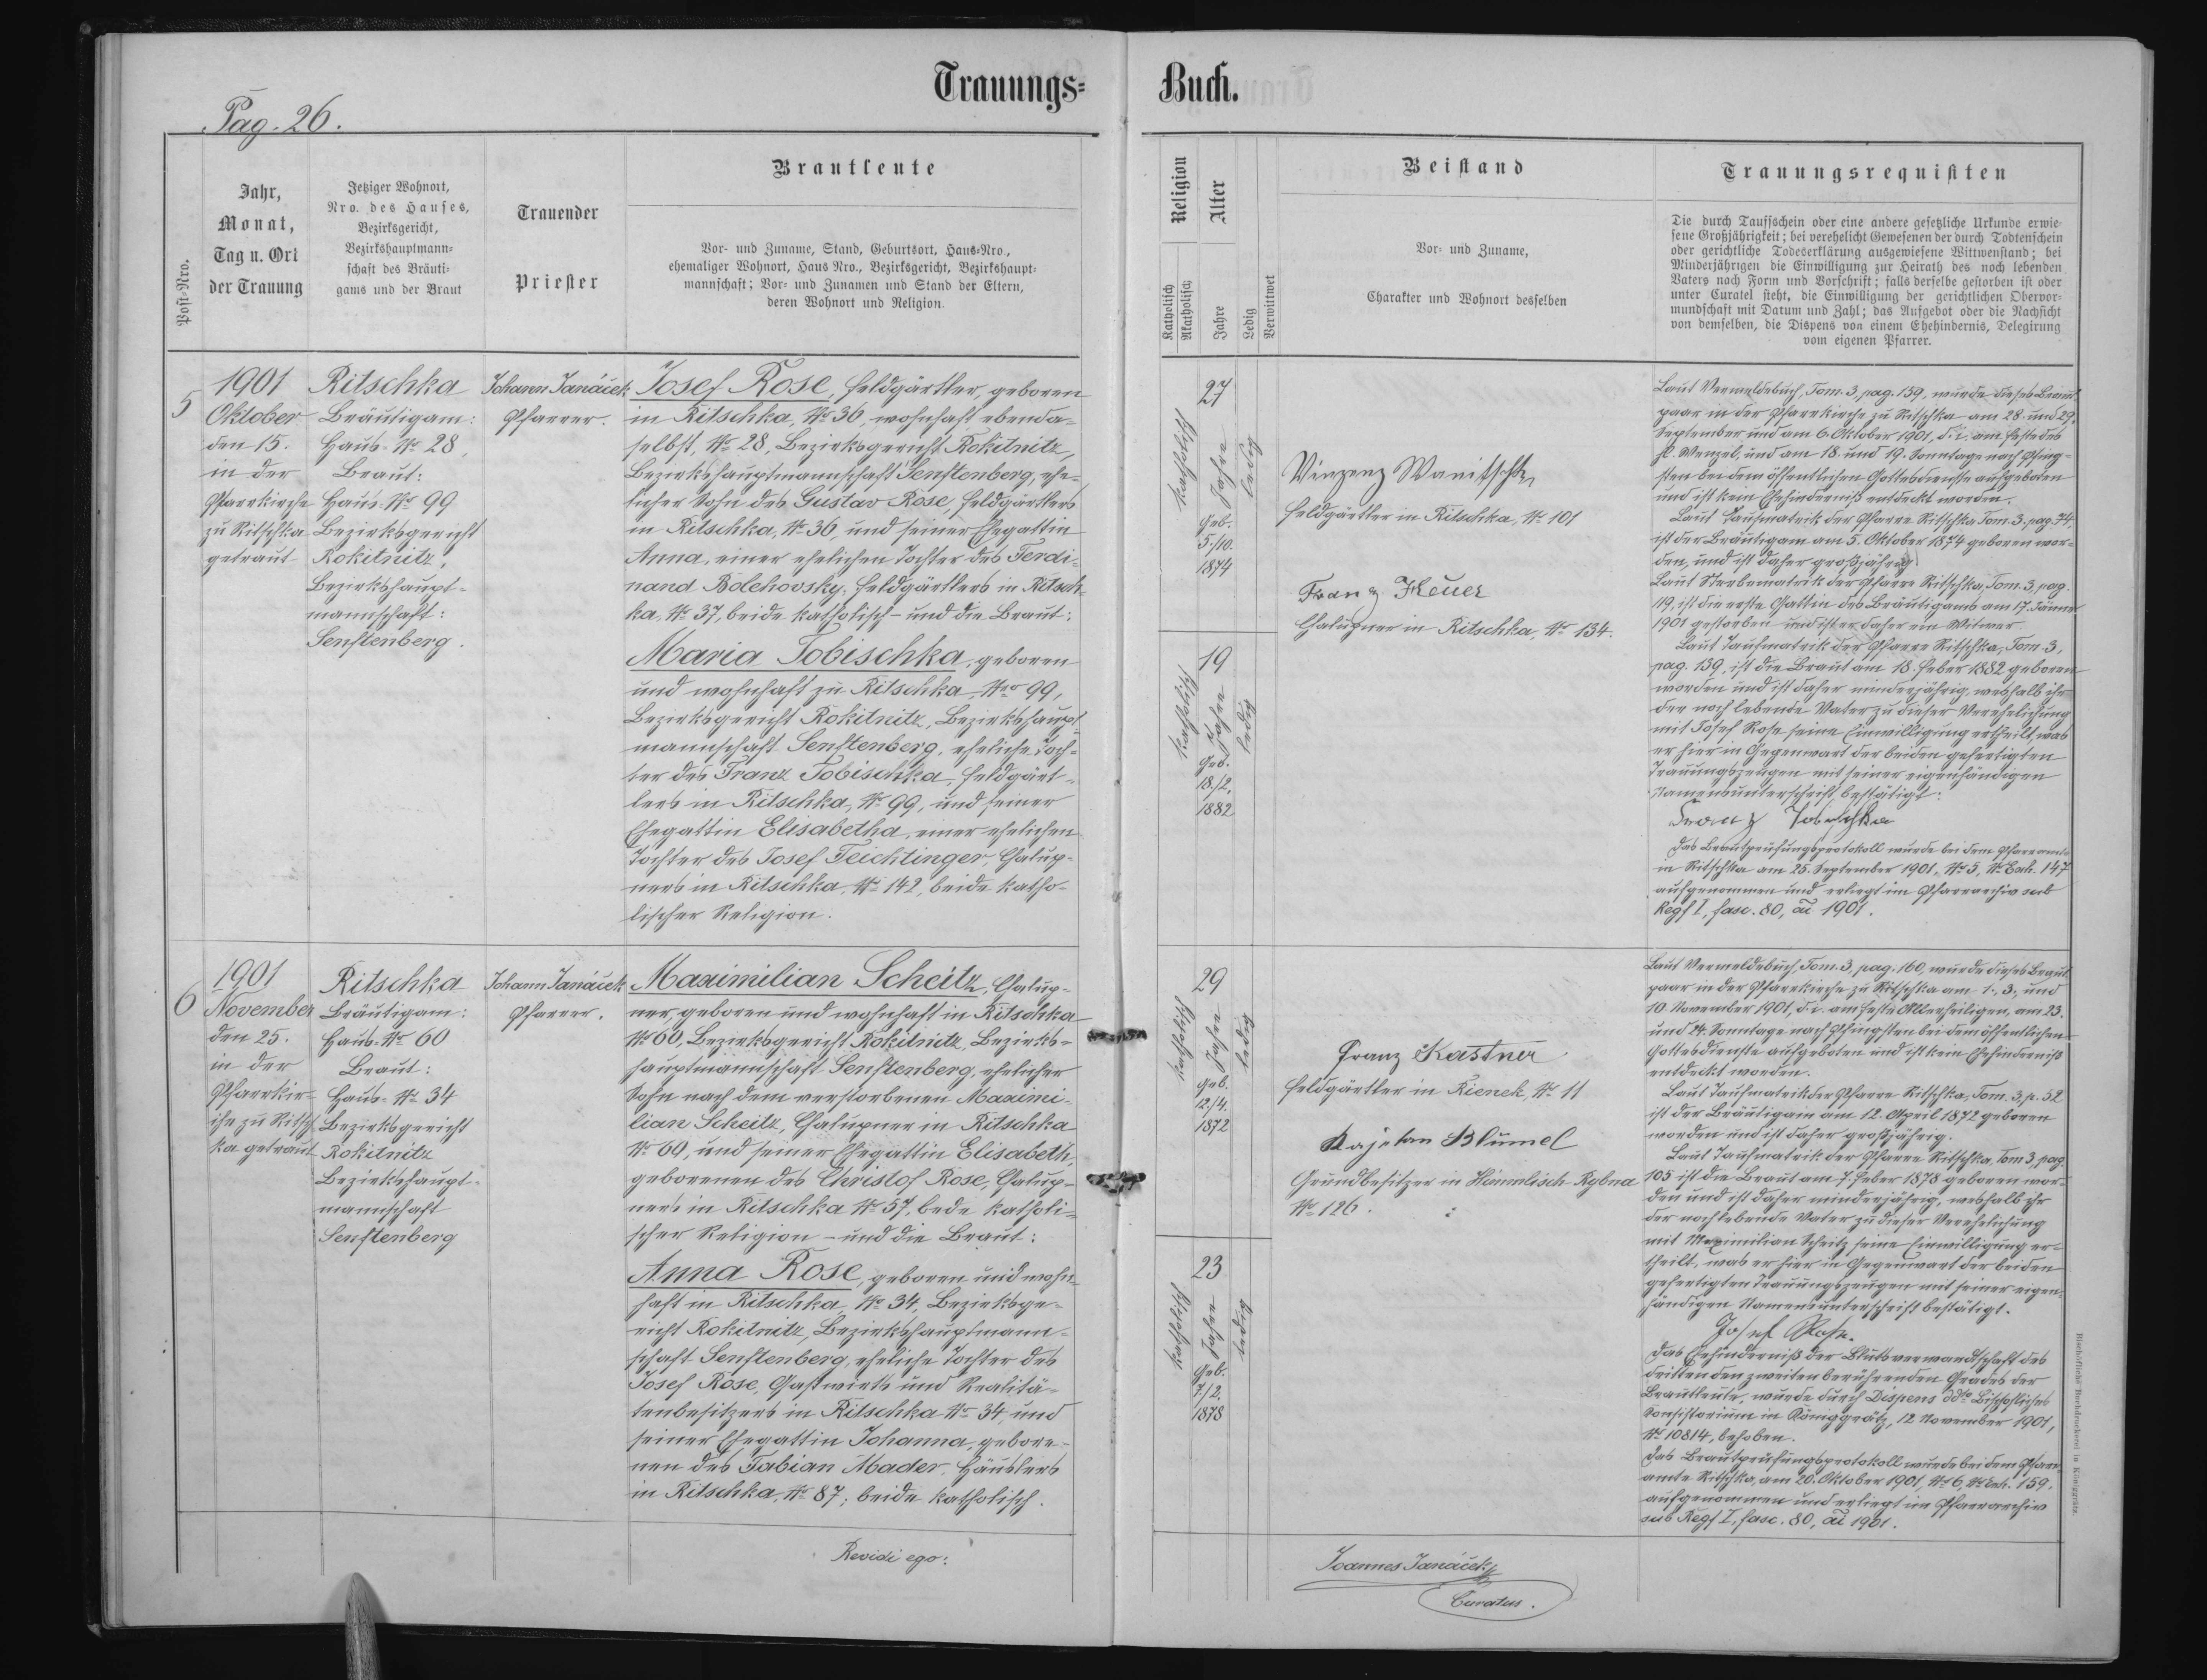 Trauungs-
Buch.
Pag. 26.
Post-Nro.
Jahr,
Monat,
Tag u. Ort
der Trauung
Jetziger Wohnort,
Nro. des Hauses,
Bezirksgericht,
Bezirkshauptmann-
schaft des Bräuti-
gams und der Braut
Trauender
Priester
Brautleute
Vor- und Zuname, Stand, Geburtsort, Haus-Nro.,
ehemaliger Wohnort, Haus Nro., Bezirksgericht, Bezirkshaupt-
mannschaft; Vor- und Zunamen und Stand der Eltern,
deren Wohnort und Religion.
Religion
Katholisch
Akatholisch
Alter
Jahre
Ledig
Verwittwet
Beistand
Vor- und Zuname,
Charakter und Wohnort desselben
Trauungsrequisiten
Die durch Taufschein oder eine andere gesetzliche Urkunde erwie-
sene Großjährigkeit; bei verehelicht Gewesenen der durch Todtenschein
oder gerichtliche Todeserklärung ausgewiesene Wittwenstand; bei
Minderjährigen die Einwilligung zur Heirath des noch lebenden
Vaters nach Form und Vorschrift; falls derselbe gestorben ist oder
unter Curatel steht, die Einwilligung der gerichtlichen Obervor-
mundschaft mit Datum und Zahl; das Aufgebot oder die Nachsicht
von demselben, die Dispens von einem Ehehindernis, Delegirung
vom eigenen Pfarrer.
5
1901
Oktober
den 15.
in der
Pfarrkirche
zu Ritschka
getraut
Ritschka
Bräutigam:
Haus-No 28,
Braut:
Haus-No 99
Bezirksgericht
Rokitnitz,
Bezirkshaupt-
mannschaft:
Senftenberg.
Johann Janáček
Pfarrer.
Josef Rose, Feldgärtler, geboren
in Ritschka, No 36, wohnhaft ebenda-
selbst, No 28, Bezirksgericht Rokitnitz,
Bezirkshauptmannschaft Senftenberg, ehe-
licher Sohn des Gustav Rose, Feldgärtlers
in Ritschka, No 36, und seiner Ehegattin
Anna, einer ehelichen Tochter des Ferdi-
nand Bolehovsky, Feldgärtlers in Ritsch-
ka, No 37, beide katholisch - und die Braut:
Maria Tobischka, geboren
und wohnhaft zu Ritschka, Nro 99,
Bezirksgericht Rokitnitz, Bezirkshaupt-
mannschaft Senftenberg, eheliche Toch-
ter des Franz Tobischka, Feldgärt-
lers in Ritschka, No 99, und seiner
Ehegattin Elisabetha, einer ehelichen
Tochter des Josef Teichtinger, Chalup-
ners in Ritschka, No 142, beide katho-
lischer Religion.
katholisch
27
Jahre
geb.
5./10.
1874
ledig
katholisch
19
Jahre
geb.
18./2.
1882
ledig
Vinzenz Wanitschke
Feldgärtler in Ritschka, No 101
Franz Heuer
Chalupner in Ritschka, No 134.
Laut Vermeldebuch, Tom. 3, pag. 159, wurde dieses Braut-
paar in der Pfarrkirche zu Ritschka am 28. und 29.
September und am 6. Oktober 1901, d. i. am Feste des
hl. Wenzel, und am 18. und 19. Sonntage nach Pfing-
sten bei dem öffentlichen Gottesdienste aufgeboten
und ist kein Ehehinderniß entdeckt worden.
Laut Taufmatrik der Pfarre Ritschka Tom. 3. pag. 74.
ist der Bräutigam am 5. Oktober 1874 geboren wor-
den, und ist daher großjährig.
Laut Sterbematrik der Pfarre Ritschka, Tom. 3, pag.
119, ist die erste Gattin des Bräutigams am 17. Jänner
1901 gestorben und ist er daher ein Witwer.
Laut Taufmatrik der Pfarre Ritschka, Tom. 3,
pag. 139, ist die Braut am 18. Feber 1882 geboren
worden und ist daher minderjährig, weshalb ihr
der noch lebende Vater zu dieser Verehelichung
mit Josef Rose seine Einwilligung ertheilt, was
er hier in Gegenwart der beiden gefertigten
Trauungszeugen mit seiner eigenhändigen
Namensunterschrift bestätigt:
Franz Tobischka
Das Brautprüfungsprotokoll wurde bei dem Pfarramte
in Ritschka am 25. September 1901, No 5, No Exh. 147
aufgenommen und erliegt im Pfarrarchiv sub
Regf I, fasc. 80, ai 1901.
6
1901
November
den 25.
in der
Pfarrkir-
che zu Ritsch-
ka getraut
Ritschka
Bräutigam:
Haus-No 60
Braut:
Haus-No 34
Bezirksgericht
Rokitnitz
Bezirkshaupt-
mannschaft
Senftenberg
Johann Janáček
Pfarrer.
Maximilian Scheitz, Chalup-
ner, geboren und wohnhaft in Ritschka
No 60, Bezirksgericht Rokitnitz, Bezirks-
hauptmannschaft Senftenberg, ehelicher
Sohn nach dem verstorbenen Maximi-
lian Scheitz, Chalupner in Ritschka
No 60, und seiner Ehegattin Elisabeth,
geborenen des Christof Rose, Chalup-
ners in Ritschka No 57, beide katholi-
scher Religion - und die Braut:
Anna Rose, geboren und wohn-
haft in Ritschka, No 34, Bezirksge-
richt Rokitnitz, Bezirkshauptmann-
schaft Senftenberg, eheliche Tochter des
Josef Rose, Gastwirts und Realitä-
tenbesitzers in Ritschka No 34, und
seiner Ehegattin Johanna, gebore-
nen des Fabian Mader, Häuslers
in Ritschka, No 87; beide katholisch.
katholisch
29
Jahre
geb.
12./4.
1872
ledig
katholisch
23
Jahre
geb.
7./2.
1878
ledig
Franz Kastner
Feldgärtler in Rienek, No 11
Kajetan Blümel
Grundbesitzer in Himmlisch Rybna
No 126.
Laut Vermeldebuch, Tom. 3, pag. 160, wurde dieses Braut-
paar in der Pfarrkirche zu Ritschka am 1., 3., und
10. November 1901, d. i. am Feste Allerheiligen, am 23.
und 24. Sonntage nach Pfingsten bei dem öffentlichen
Gottesdienste aufgeboten und ist kein Ehehinderniß
entdeckt worden.
Laut Taufmatrik der Pfarre Ritschka, Tom. 3, p. 52
ist der Bräutigam am 12. April 1872 geboren
worden und ist daher großjährig.
Laut Taufmatrik der Pfarre Ritschka, Tom 3, pag.
105 ist die Braut am 7. Feber 1878 geboren wor-
den und ist daher minderjährig, weshalb ihr
der noch lebende Vater zu dieser Verehelichung
mit Maximilian Scheitz seine Einwilligung er-
theilt, was er hier in Gegenwart der beiden
gefertigten Trauungszeugen mit seiner eigen-
händigen Namensunterschrift bestätigt.
Josef Rose.
Das Ehehinderniß der Blutsverwandtschaft des
dritten den zweiten berührenden Grades der
Brautleute, wurde durch Dispens ddto Bischöfliches
Konsistorium in Königgrätz, 12. November 1901,
No 10814, behoben.
Das Brautprüfungsprotokoll wurde bei dem Pfarr-
amte Ritschka, am 20. Oktober 1901, No 6, No Exh. 159,
aufgenommen und erliegt im Pfarrarchiv
sub Regf I, fasc. 80, ai 1901.
Revidi ego:
Joannes Janáček
Curatus.
Bischöfliche Buchdruckerei in Königgrätz.